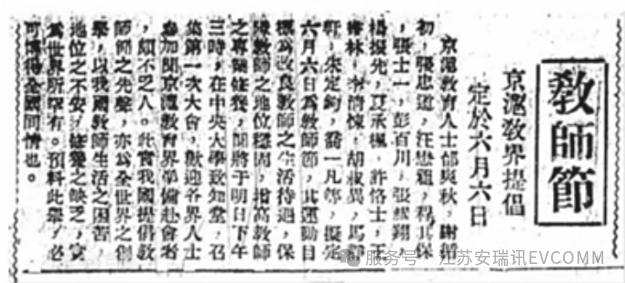 教師節
京滬教界提倡
定於六月六日
京滬教育人士邰爽秋,謝循
初,張忠道,汪懋祖,程其保
,張士一,彭百川,張耿翔,
楊振先,夏承楓,許恪士,王
書林,李清悚,胡叔異,馬靜
軒,朱定鈞,喬一凡等,擬定
六月六日為教師節,其運動目
標為改良教師之生活待遇,保
障教師之地位穩固,增高教師
之專業修養,聞將于明日下午
三時,在中央大學致知堂,召
集第一次大會,歡迎各界人士
參加聞京滬教育界準備赴會者
,頗不乏人。此實我國提倡教
師節之先聲,亦為全世界之創
舉,以我國教師生活之困苦,
地位之不安,修養之缺乏,實
為世界所罕有。預料此舉,必
可博得全國同情也。
服务号 · 江苏安瑞讯EVCOMM